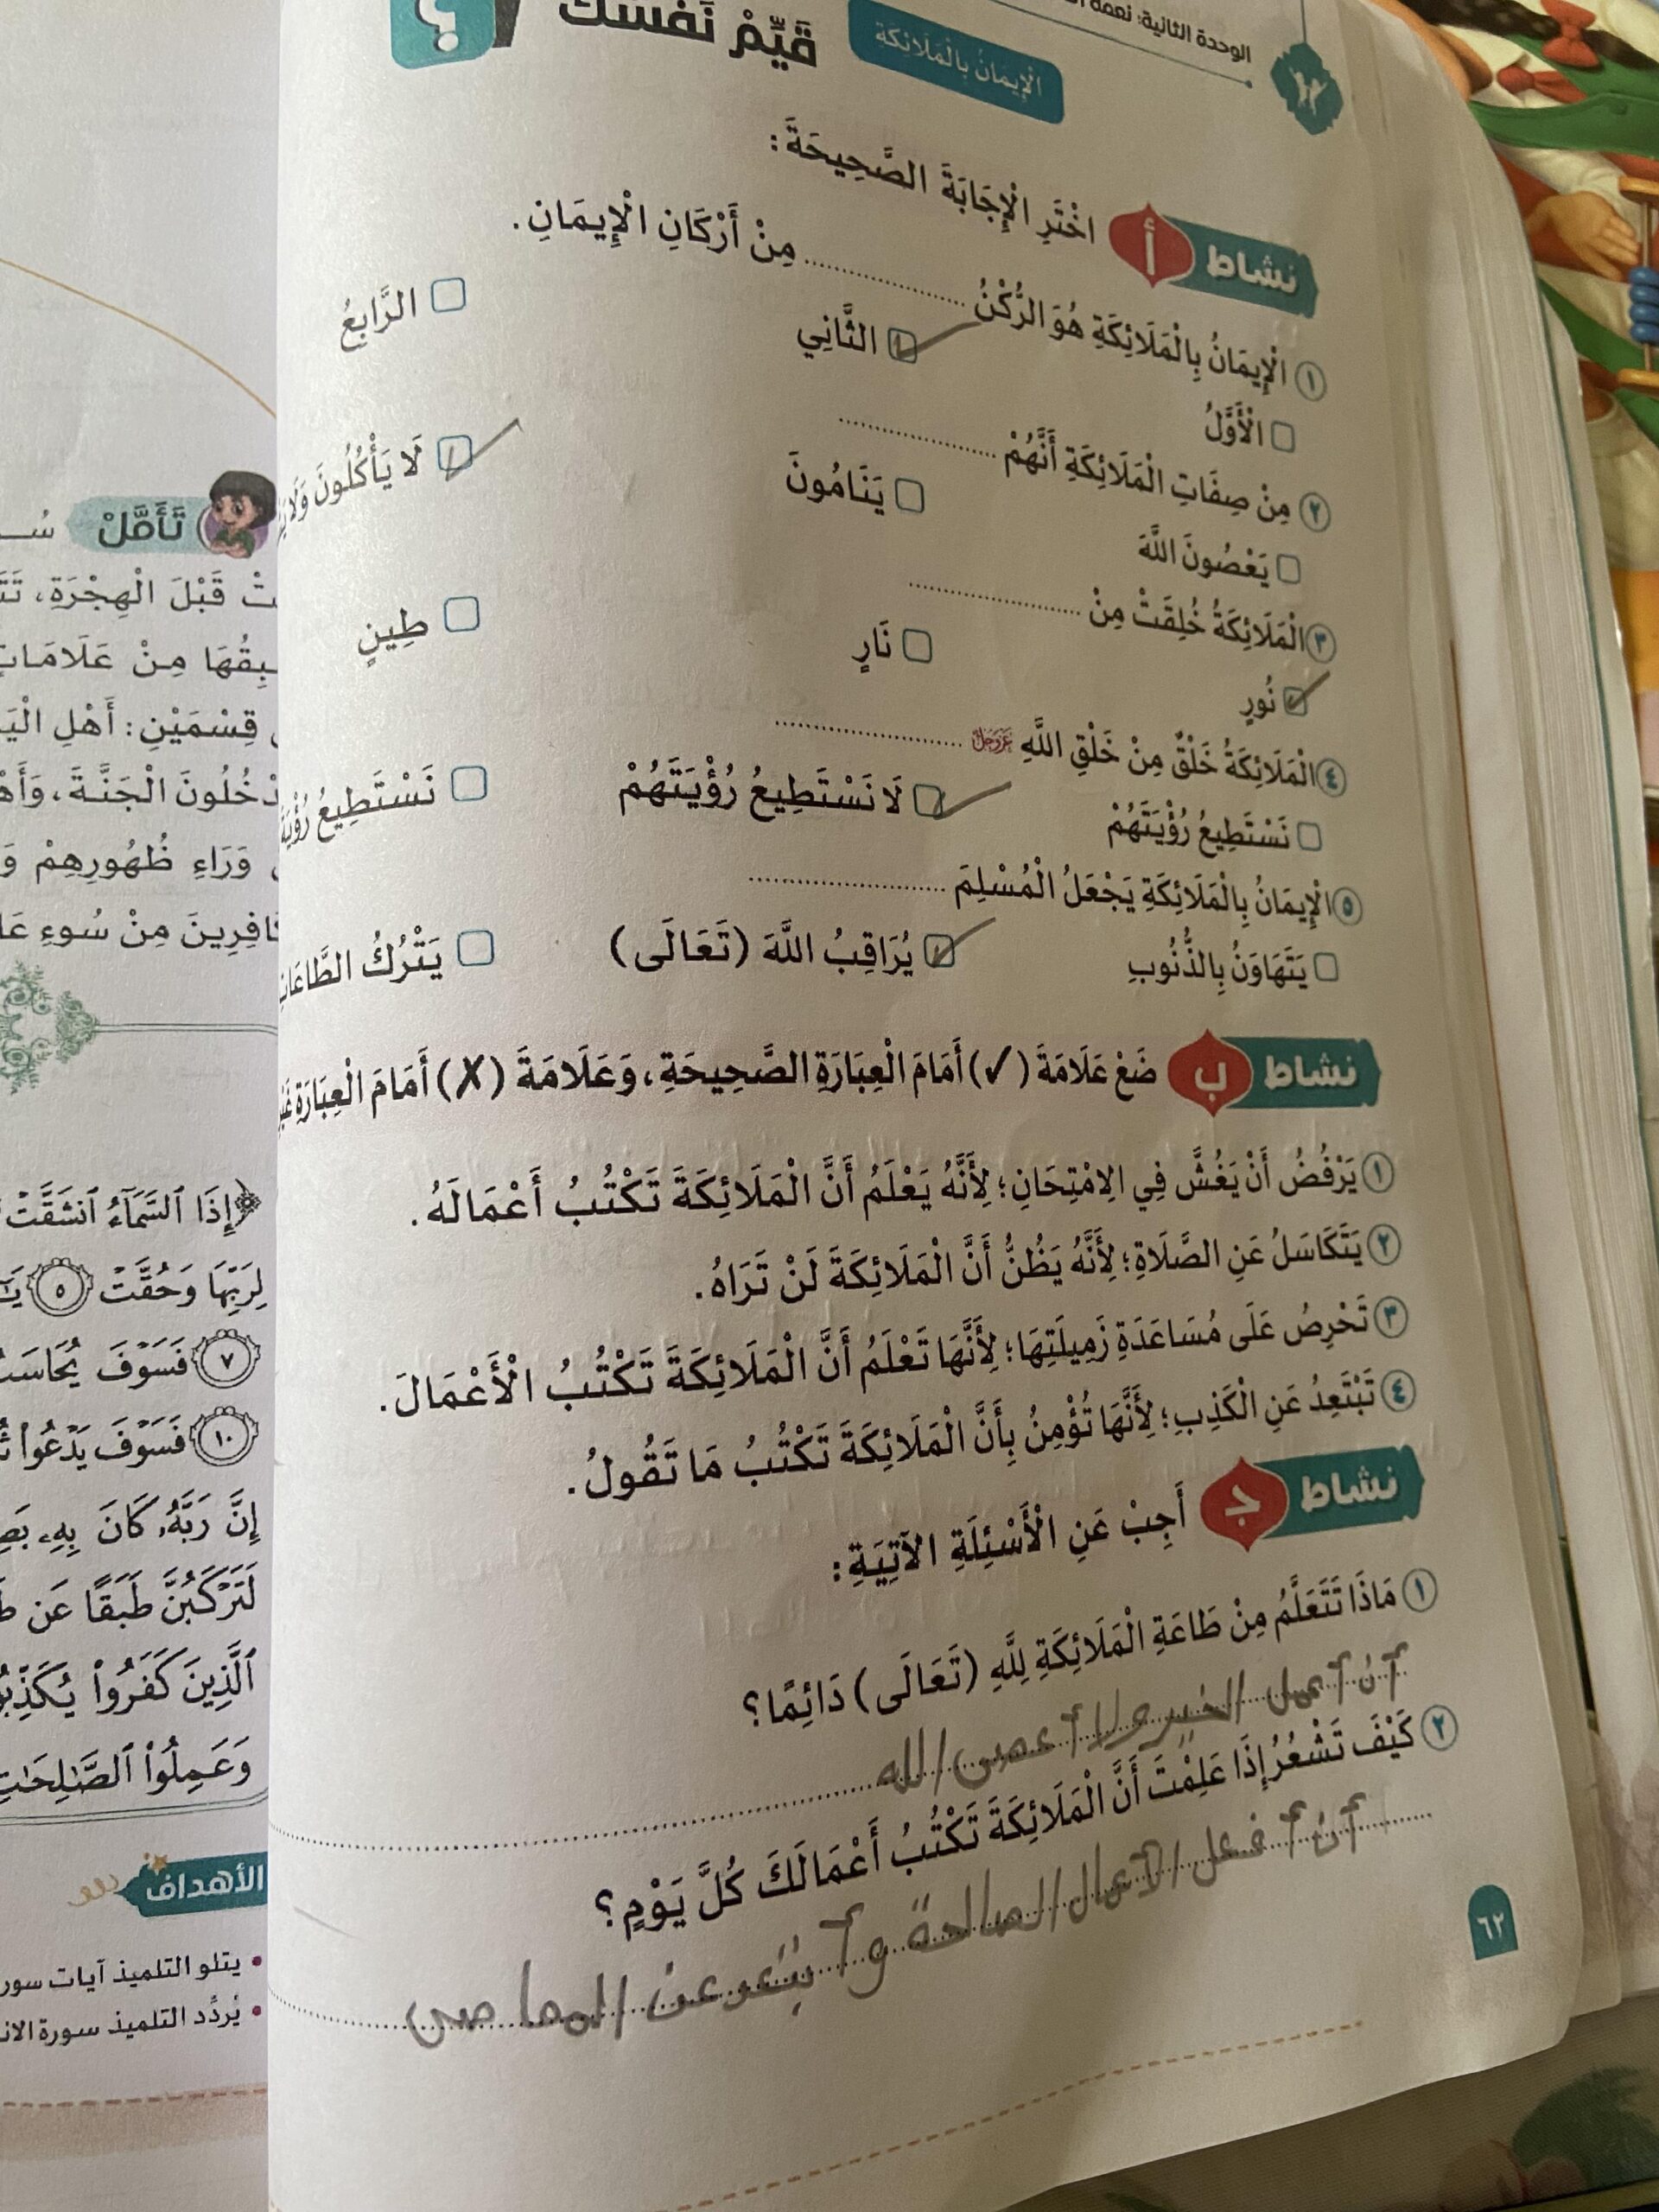 الوحدة الثانية: نعمة
الْإِيمَانُ بِالْمَلَائِكَةِ
قَيِّمْ نَفْسَكَ
؟
نشاط أ اخْتَرِ الْإِجَابَةَ الصَّحِيحَةَ:
١ الْإِيمَانُ بِالْمَلَائِكَةِ هُوَ الرُّكْنُ .................... مِنْ أَرْكَانِ الْإِيمَانِ.
الْأَوَّلُ الثَّانِي الرَّابِعُ
٢ مِنْ صِفَاتِ الْمَلَائِكَةِ أَنَّهُمْ ....................
يَعْصُونَ اللَّهَ يَنَامُونَ لَا يَأْكُلُونَ وَلَا
٣ الْمَلَائِكَةُ خُلِقَتْ مِنْ ....................
نُورٍ نَارٍ طِينٍ
٤ الْمَلَائِكَةُ خَلْقٌ مِنْ خَلْقِ اللَّهِ عَزَّوَجَلَّ ....................
نَسْتَطِيعُ رُؤْيَتَهُمْ لَا نَسْتَطِيعُ رُؤْيَتَهُمْ نَسْتَطِيعُ
٥ الْإِيمَانُ بِالْمَلَائِكَةِ يَجْعَلُ الْمُسْلِمَ ....................
يَتَهَاوَنُ بِالذُّنُوبِ يُرَاقِبُ اللَّهَ (تَعَالَى) يَتْرُكُ الطَّاعَاتِ
نشاط ب ضَعْ عَلَامَةَ (✓) أَمَامَ الْعِبَارَةِ الصَّحِيحَةِ، وَعَلَامَةَ (✗) أَمَامَ الْعِبَارَةِ
١ يَرْفُضُ أَنْ يَغُشَّ فِي الِامْتِحَانِ؛ لِأَنَّهُ يَعْلَمُ أَنَّ الْمَلَائِكَةَ تَكْتُبُ أَعْمَالَهُ.
٢ يَتَكَاسَلُ عَنِ الصَّلَاةِ؛ لِأَنَّهُ يَظُنُّ أَنَّ الْمَلَائِكَةَ لَنْ تَرَاهُ.
٣ تَحْرِصُ عَلَى مُسَاعَدَةِ زَمِيلَتِهَا؛ لِأَنَّهَا تَعْلَمُ أَنَّ الْمَلَائِكَةَ تَكْتُبُ الْأَعْمَالَ.
٤ تَبْتَعِدُ عَنِ الْكَذِبِ؛ لِأَنَّهَا تُؤْمِنُ بِأَنَّ الْمَلَائِكَةَ تَكْتُبُ مَا تَقُولُ.
نشاط ج أَجِبْ عَنِ الْأَسْئِلَةِ الْآتِيَةِ:
١ مَاذَا تَتَعَلَّمُ مِنْ طَاعَةِ الْمَلَائِكَةِ لِلَّهِ (تَعَالَى) دَائِمًا؟
أن أعمل الخير ولا أعصى الله
٢ كَيْفَ تَشْعُرُ إِذَا عَلِمْتَ أَنَّ الْمَلَائِكَةَ تَكْتُبُ أَعْمَالَكَ كُلَّ يَوْمٍ؟
أن أفعل الأعمال الصالحة وأبتعد عن المعاصى
٦٢
تَأَمَّلْ
قَبْلَ الْهِجْرَةِ،
مِنْ عَلَامَاتِ
قِسْمَيْنِ: أَهْلِ
الْجَنَّةَ،
وَرَاءِ ظُهُورِهِمْ
مِنْ سُوءِ
﴿إِذَا ٱلسَّمَآءُ ٱنشَقَّتْ
لِرَبِّهَا وَحُقَّتْ ٥
٧ فَسَوْفَ يُحَاسَبُ
١٠ فَسَوْفَ يَدْعُوا۟
إِنَّ رَبَّهُۥ كَانَ بِهِۦ
لَتَرْكَبُنَّ طَبَقًا عَن
ٱلَّذِينَ كَفَرُوا۟
وَعَمِلُوا۟ ٱلصَّٰلِحَٰتِ
الأهداف
• يتلو التلميذ آيات
• يُردِّد التلميذ سورة